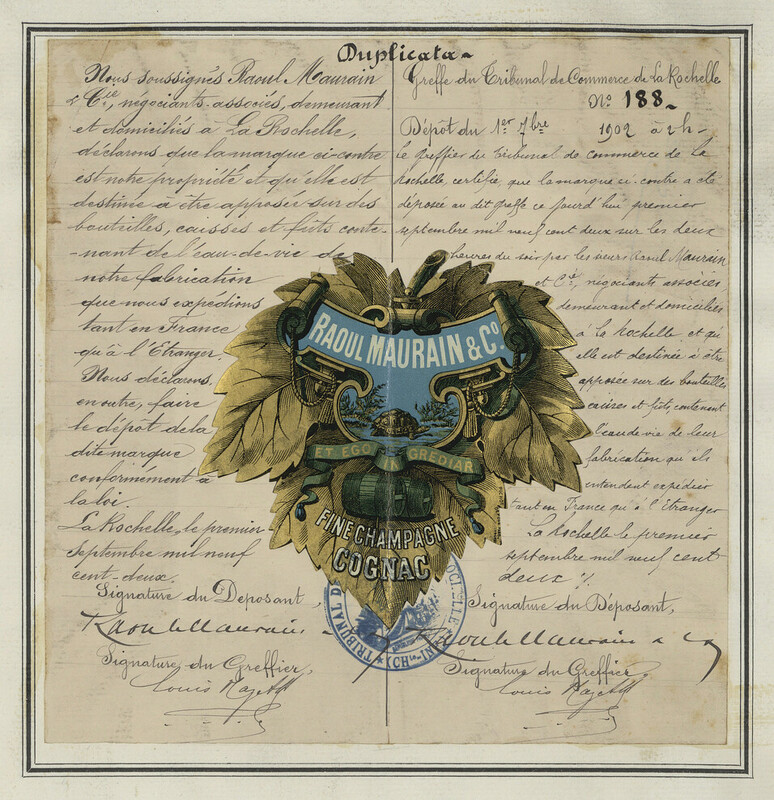 Duplicata
Nous soussignés Raoul Maurain
& Cie, négociants-associés, demeurant
et domiciliés à La Rochelle,
déclarons que la marque ci-contre
est notre propriété et qu'elle est
destinée à être apposée sur des
bouteilles, caisses et fûts conte-
-nant de l'eau-de-vie de
notre fabrication
que nous expédions
tant en France
qu'à l'Etranger.
Nous déclarons,
en outre, faire
le dépôt de la
dite marque
conformément à
la loi.
La Rochelle, le premier
Septembre mil neuf
cent-deux.
Signature du Déposant,
Raoul Maurain
Signature du Greffier,
Louis
Greffe du Tribunal de Commerce de La Rochelle
No 188
Dépôt du 1er 7bre 1902 à 2h
Le Greffier du Tribunal de commerce de La
Rochelle, certifie, que la marque ci-contre a été
déposée au dit greffe ce jourd'hui premier
septembre mil neuf cent deux sur les deux
heures du soir par les sieurs Raoul Maurain
et Cie, négociants associés
demeurant et domiciliés
à La Rochelle et qu'
elle est destinée à être
apposée sur des bouteilles
caisses et fûts, contenant
l'eau de vie de leur
fabrication qu'ils
entendent expédier
tant en France qu'à l'étranger
La Rochelle le premier
septembre mil neuf cent
deux
Signature du Déposant,
Raoul Maurain &
Signature du Greffier
Louis
RAOUL MAURAIN & Co.
ET EGO IN GREDIAR
FINE CHAMPAGNE
COGNAC
TRIBUNAL D
OCHELLE
(CHte-INf